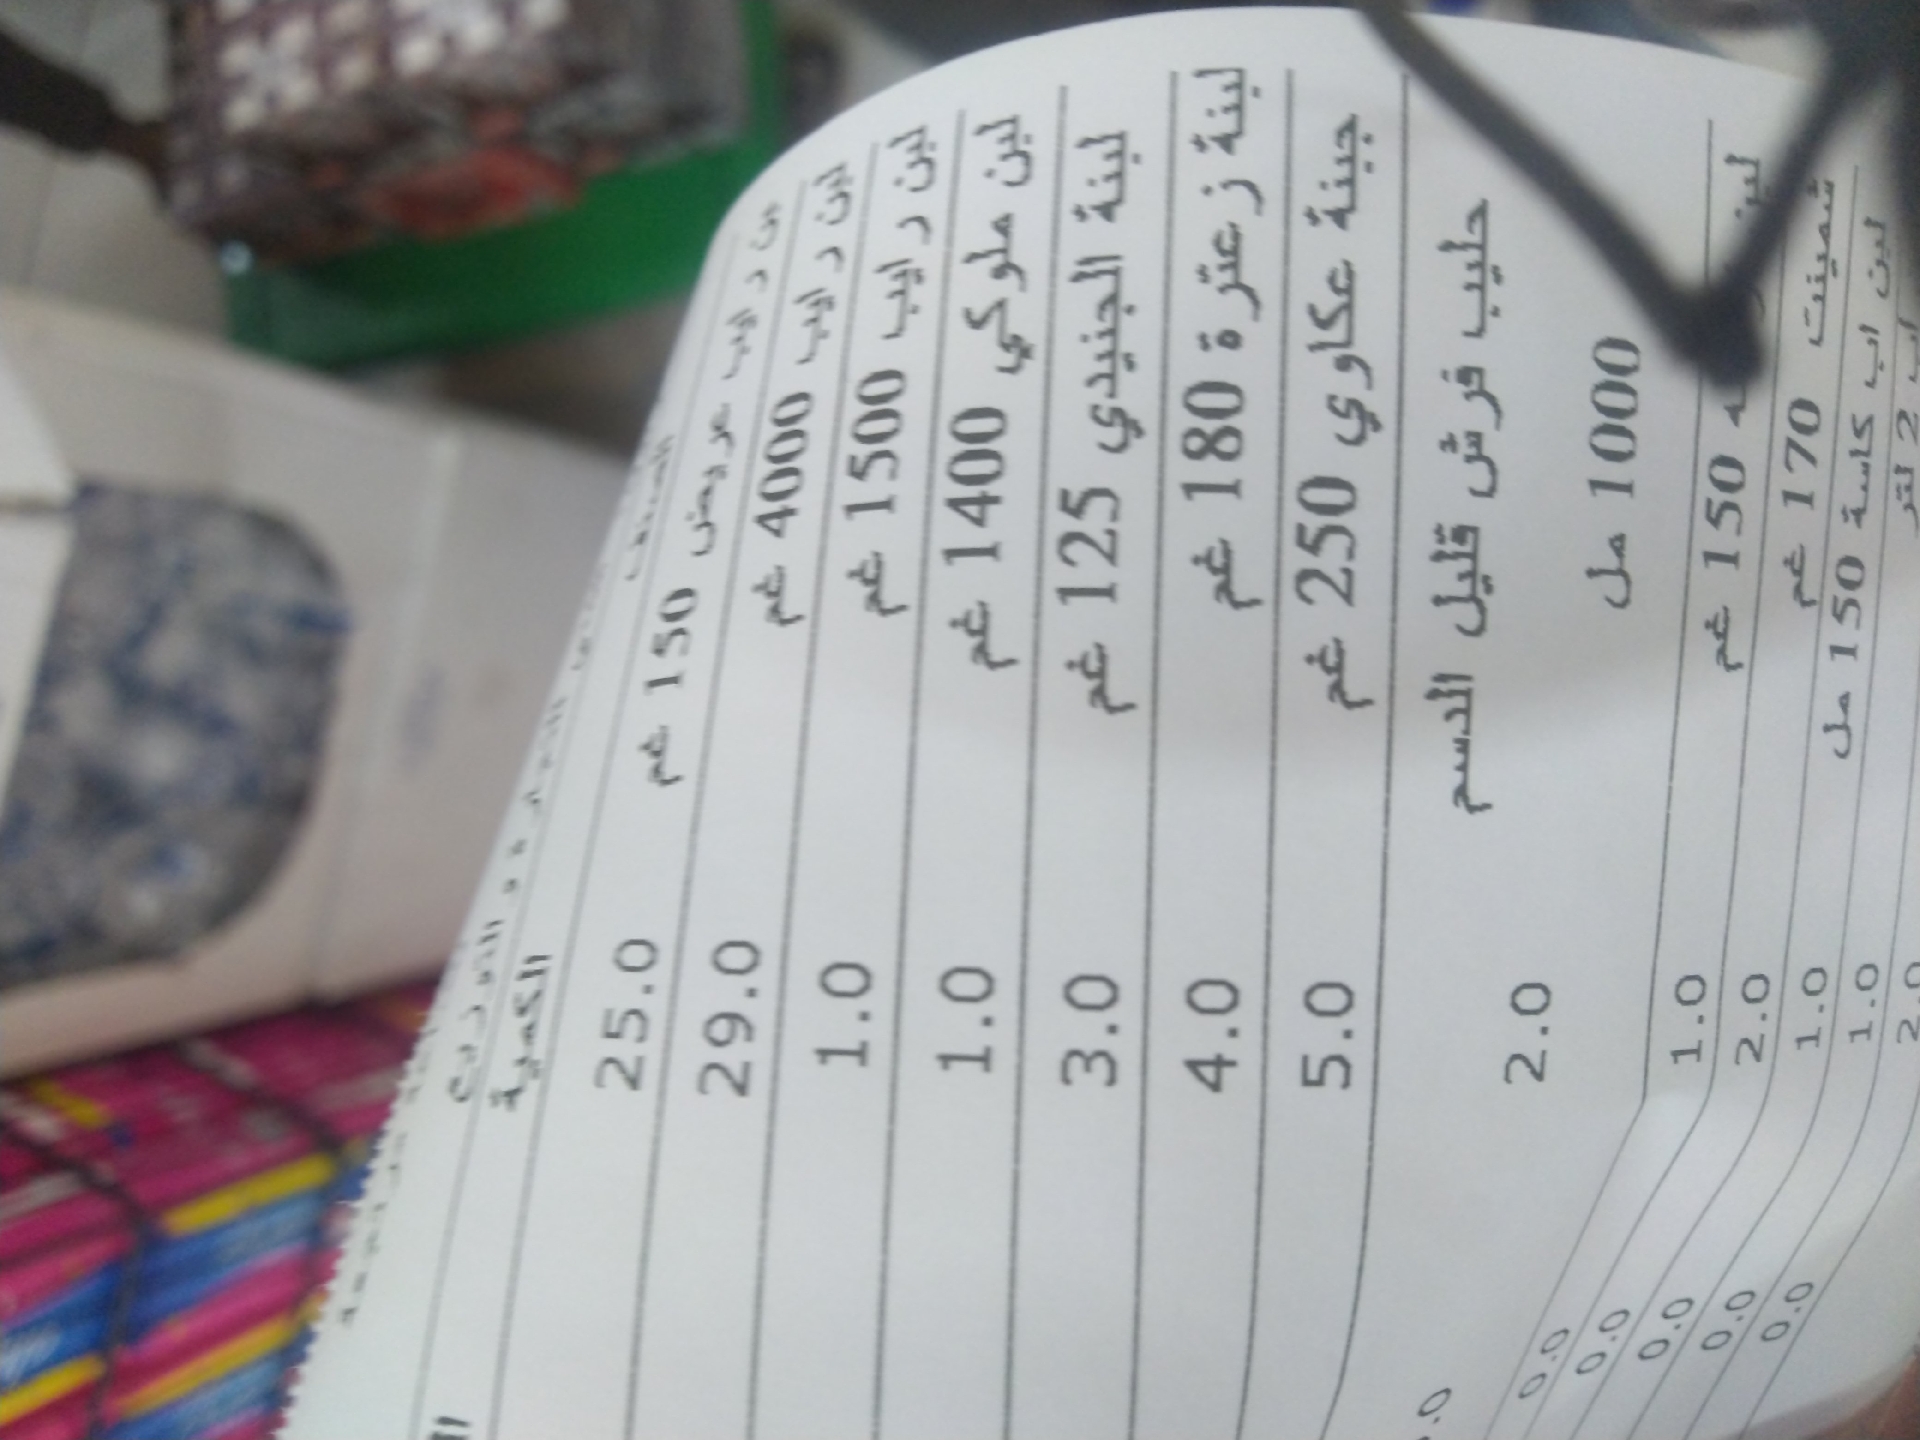 و التوزيع
الكمية
لبن رايب عريض 150 غم 25.0
لبن رايب 4000 غم 29.0
لبن رايب 1500 غم 1.0
لبن ملوكي 1400 غم 1.0
لبنة الجنيدي 125 غم 3.0
لبنة زعترة 180 غم 4.0
جبنة عكاوي 250 غم 5.0
حليب فرش قليل الدسم
1000 مل 2.0
150 غم 1.0 0.0
شمينت 170 غم 2.0 0.0
لبن اب كاسة 150 مل 1.0 0.0
اب 2 لتر 1.0 0.0
2.0 0.0